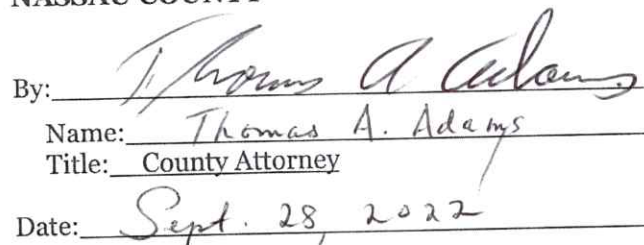 NASSAU COUNTY
By: Thomas A Adams
Name: Thomas A. Adams
Title: County Attorney
Date: Sept. 28, 2022